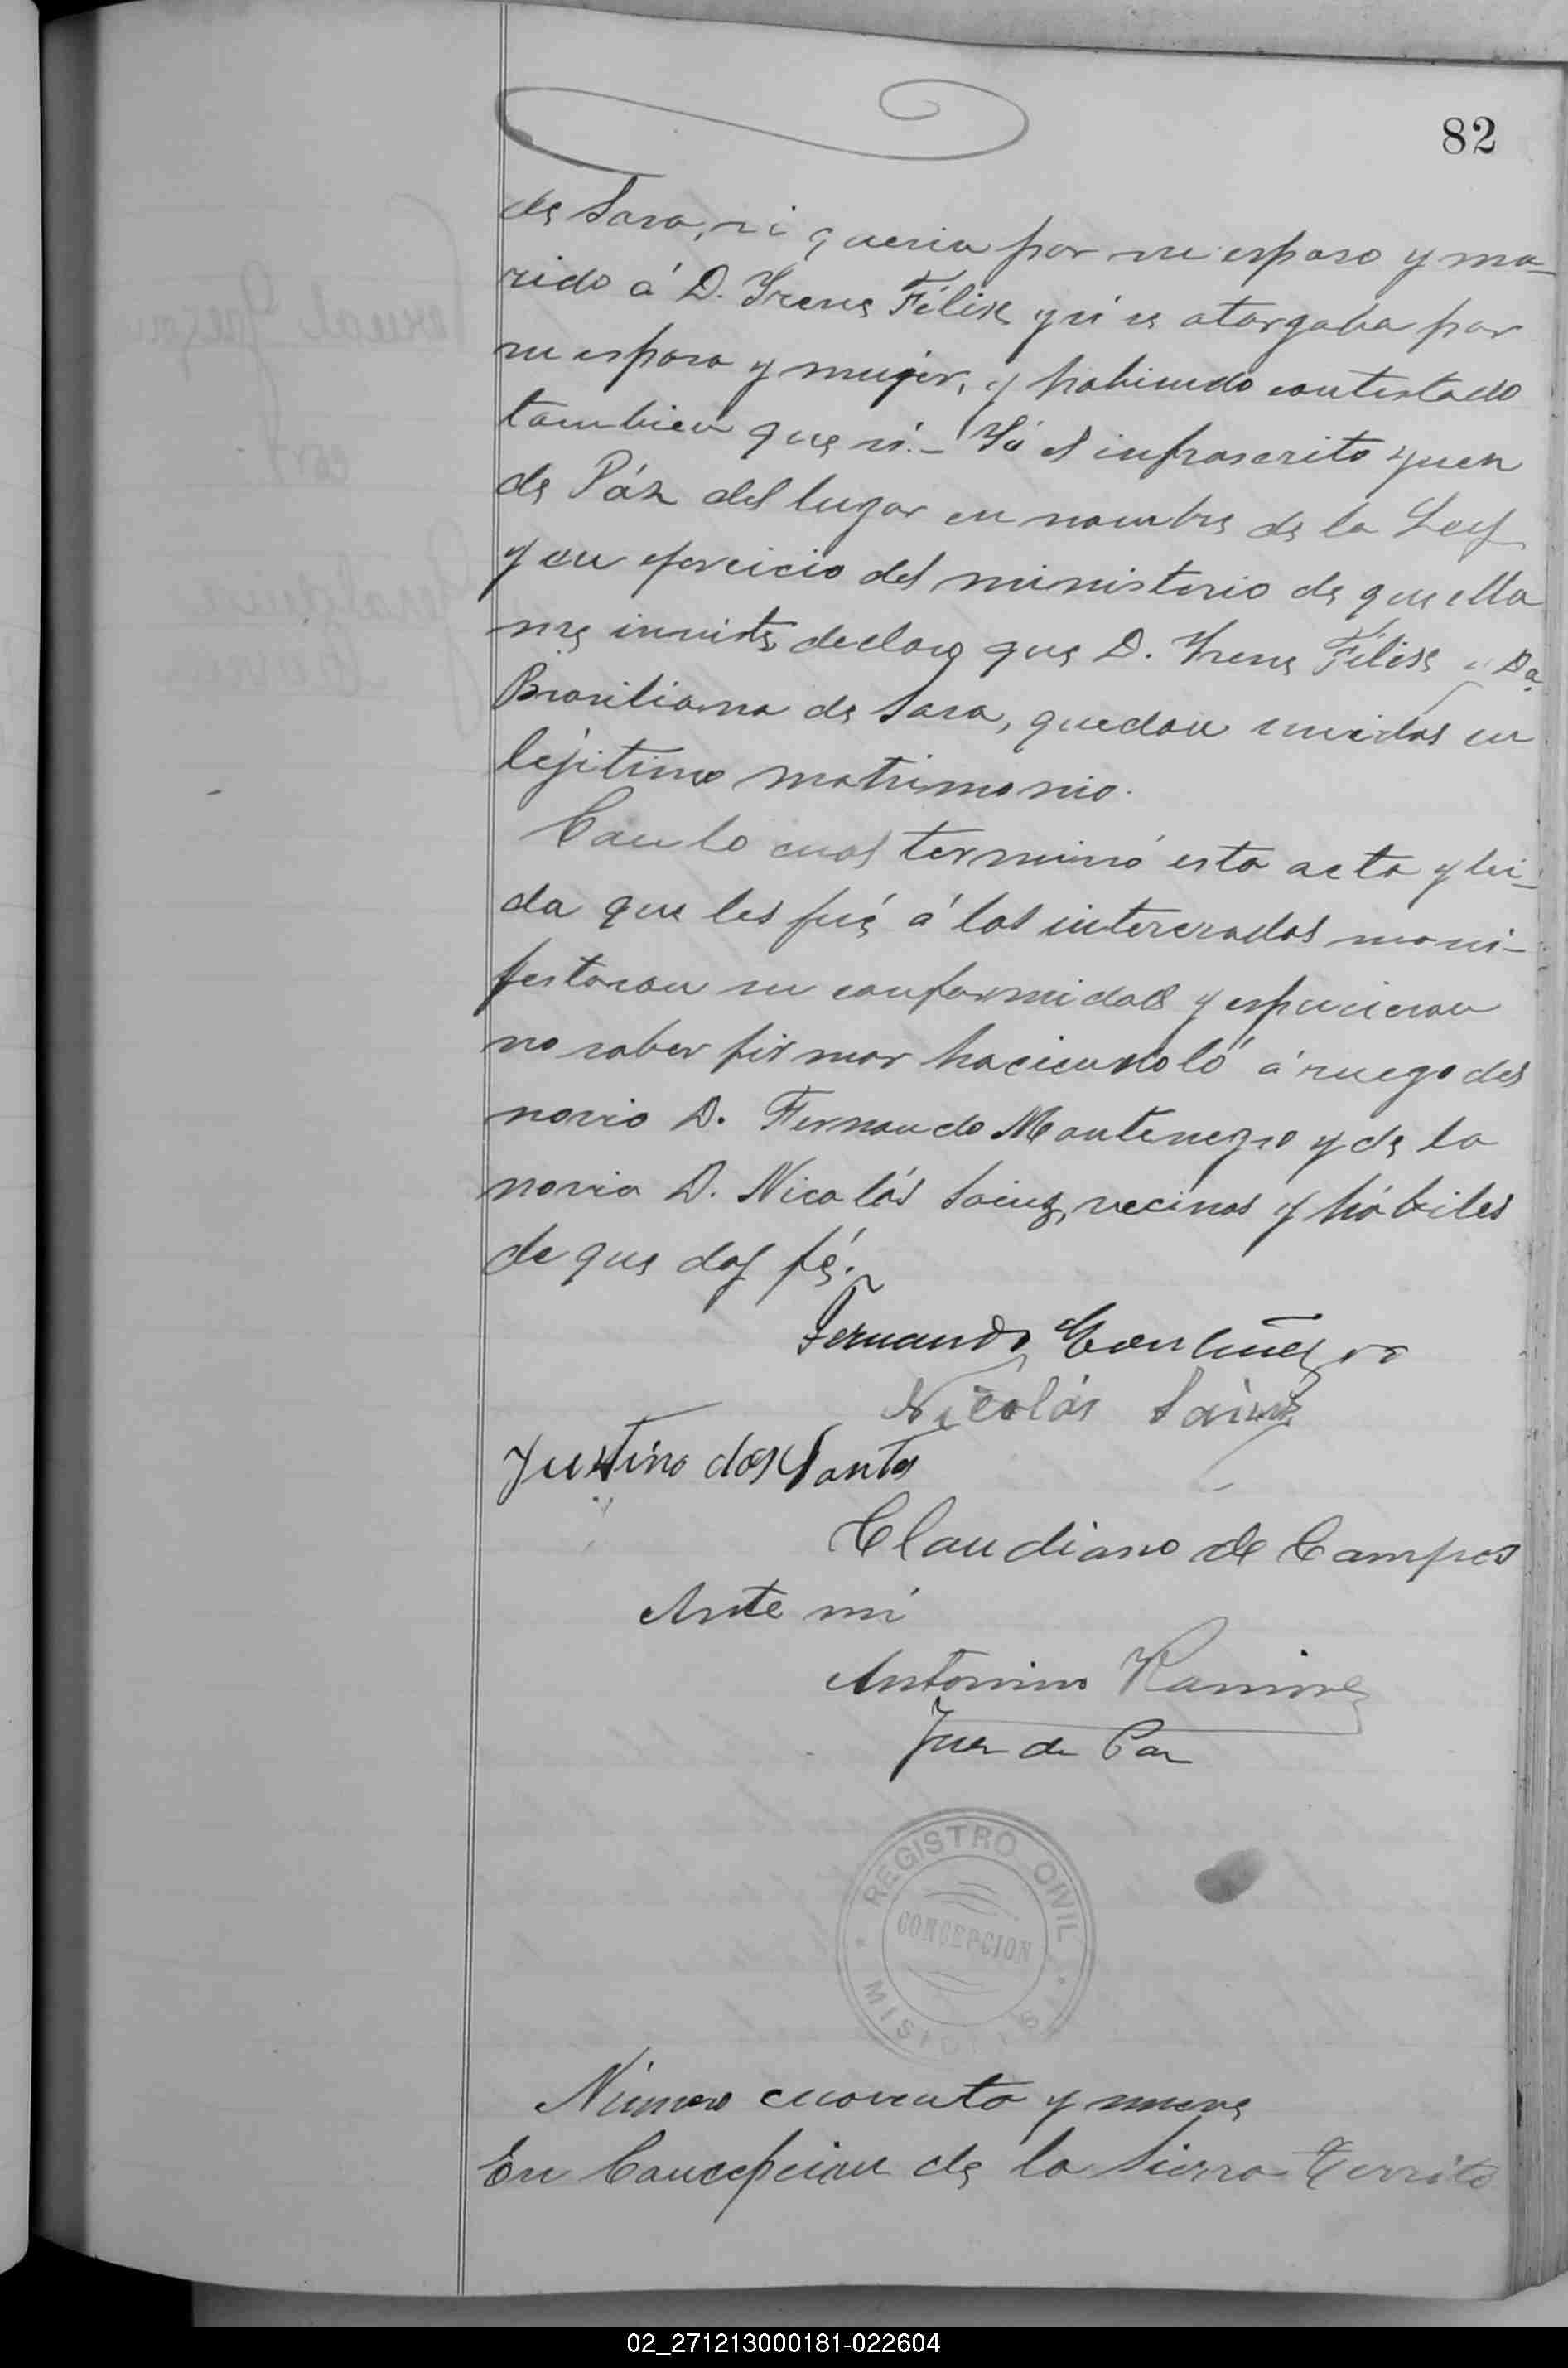 82
de Sara, si queria por su esposo y ma-
rido á D. Irene Félix y si se otorgaba por
su esposa y mujer, y habiendo contestado
tambien que si.- Yó el infrascrito Juez
de Páz del lugar en nombre de la Ley
y en ejercicio del ministerio de que ella
me inviste, declaro que D. Irene Félix y Da.
Brasiliana de Sara, quedan unidos en
lejitimo matrimonio.
Con lo cual terminó esta acta y lei-
da que les fué á los interesados mani-
festaron su conformidad y espusieron
no saber firmar haciendoló á ruego del
novio D. Fernando Montenegro y de la
novia D. Nicolás Sainz, vecinos y hábiles
de que doy fé.
Fernando Montenegro
Nicolás Sainz
Justino dos Santos
Claudiano de Campos
Ante mi
Antonino Ramirez
Juez de Paz
REGISTRO CIVIL
CONCEPCION
MISIONES
Número cuarenta y nueve
En Concepcion de la Sierra Territo
02_271213000181-022604